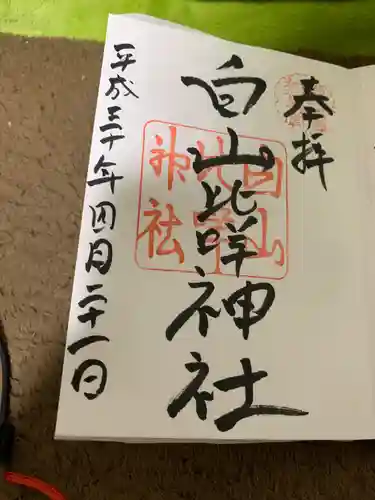 奉拝
白山比咩神社
白山比咩神社
平成三十年四月二十一日